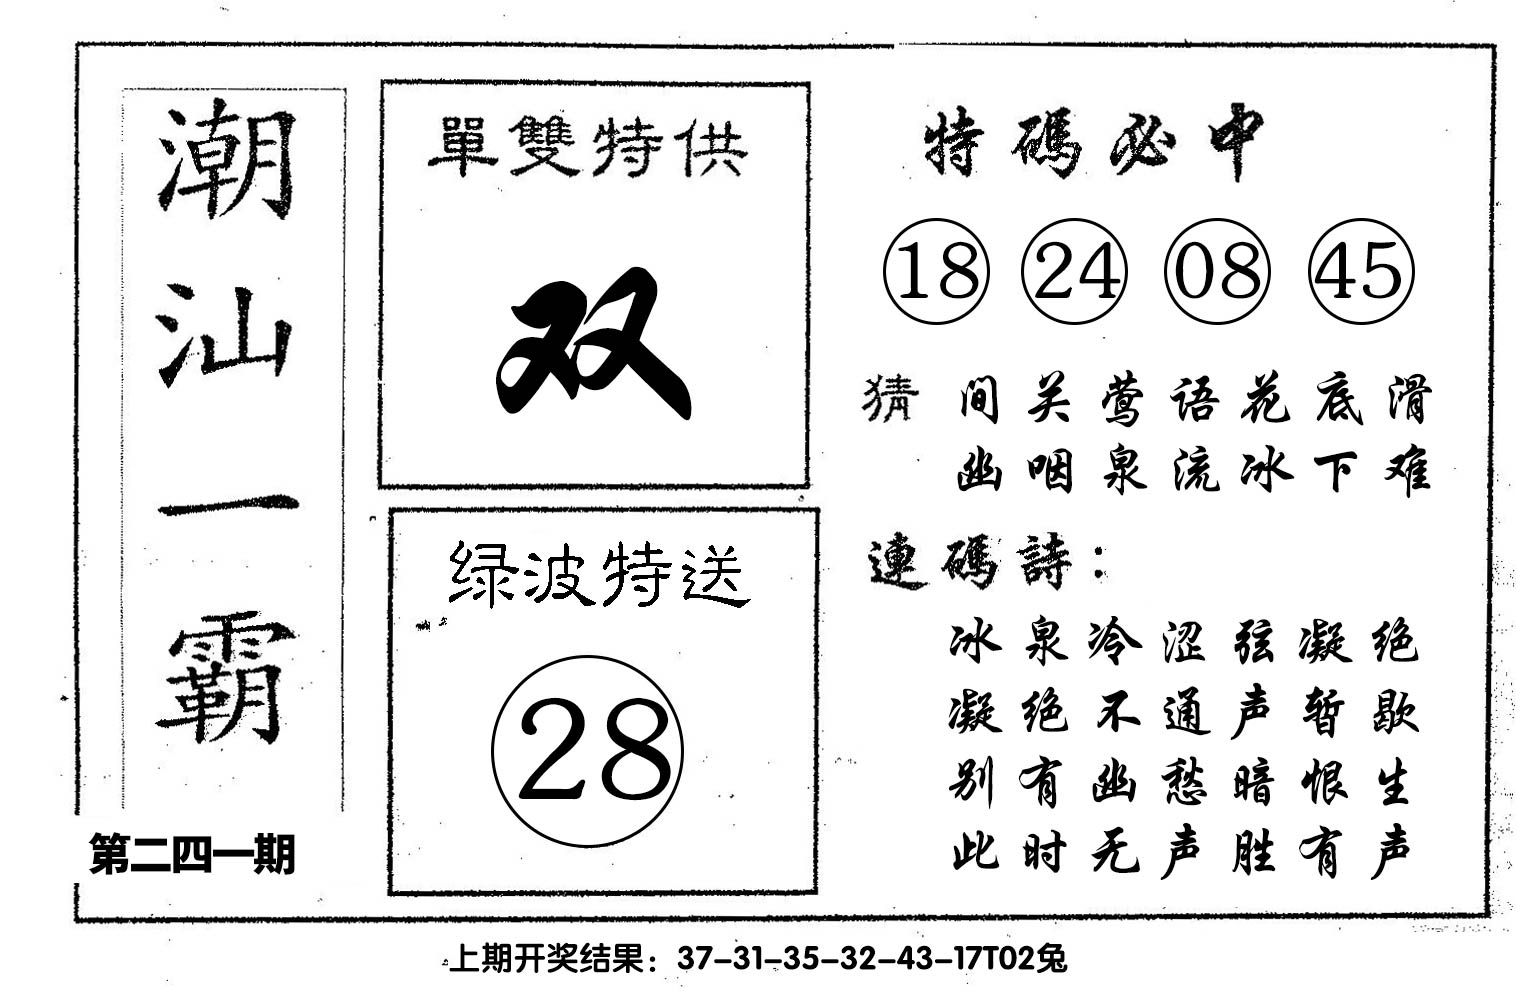 潮汕一霸
第二四一期
單雙特供
双
绿波特送
28
特碼必中
18 24 08 45
猜 间关莺语花底滑
幽咽泉流冰下难
連碼詩：
冰泉冷涩弦凝绝
凝绝不通声暂歇
别有幽愁暗恨生
此时无声胜有声
上期开奖结果：37-31-35-32-43-17T02兔